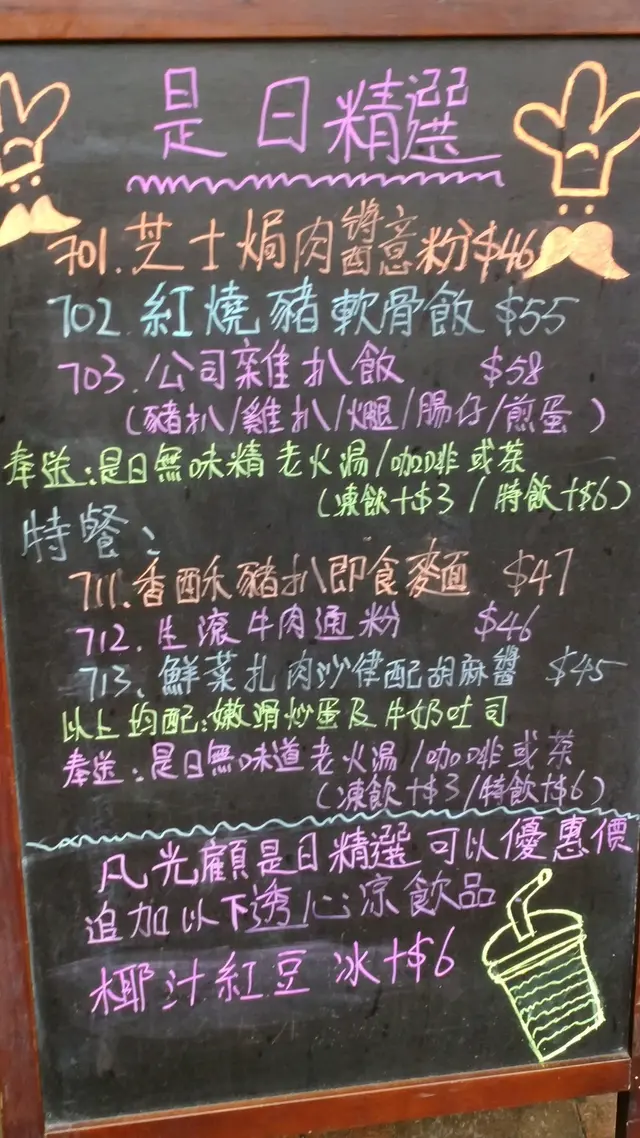 是日精選
701.芝士焗肉醬意粉$46
702.紅燒豬軟骨飯 $55
703.公司雜扒飯 $58
(豬扒/雞扒/火腿/腸仔/煎蛋)
奉送:是日無味精老火湯/咖啡或茶
(凍飲+$3/特飲+$6)
特餐:
711.香酥豬扒即食麥麵 $47
712.生滾牛肉通粉 $46
713.鮮菜扎肉沙律配胡麻醬 $45
以上均配:嫩滑炒蛋及牛奶吐司
奉送:是日無味道老火湯/咖啡或茶
(凍飲+$3/特飲+$6)
凡光顧是日精選可以優惠價
追加以下透心涼飲品
椰汁紅豆冰+$6